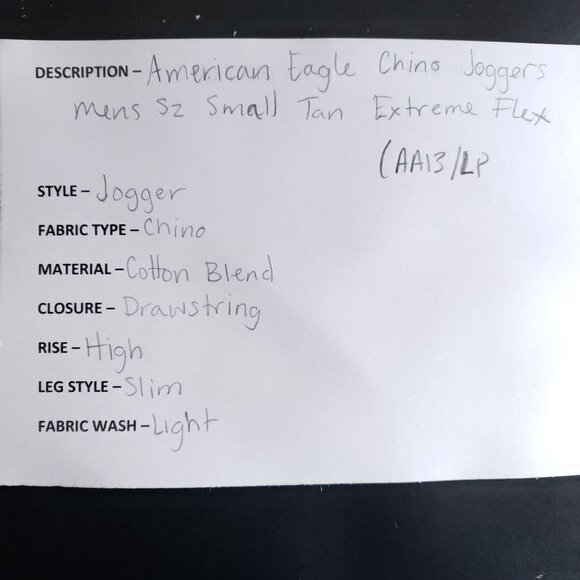 DESCRIPTION – American Eagle Chino Joggers
mens Sz Small Tan Extreme Flex
(AA13/LP
STYLE – Jogger
FABRIC TYPE – Chino
MATERIAL – Cotton Blend
CLOSURE – Drawstring
RISE – High
LEG STYLE – Slim
FABRIC WASH – Light